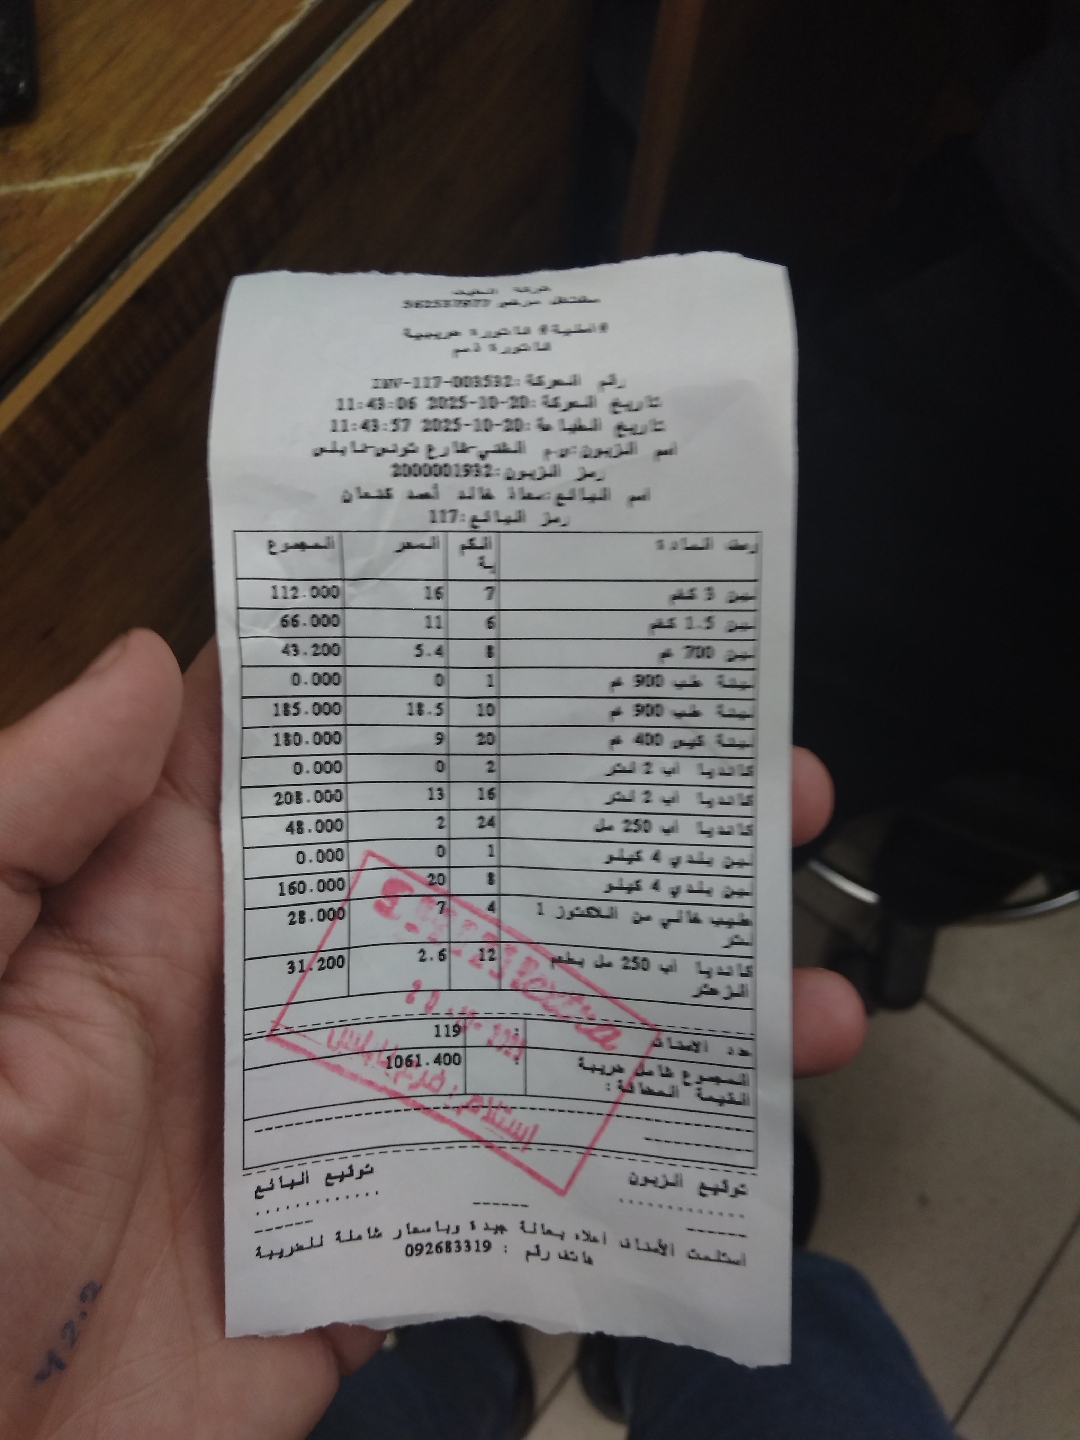 مشتغل مرخص 562537977
#اصلية# فاتورة ضريبية
فاتورة ذمم
رقم الحركة:INV-117-003532
تاريخ الحركة:20-10-2025 11:43:06
تاريخ الطباعة:20-10-2025 11:43:57
اسم الزبون:م.م الطني-شارع تونس-نابلس
رمز الزبون:2000001932
اسم البائع:معاذ خالد أحمد كنعان
رمز البائع:117
وصف المادة الكمية السعر المجموع
لبن 3 كغم 7 16 112.000
لبن 1.5 كغم 6 11 66.000
لبن 700 غم 8 5.4 43.200
لبنة طب 900 غم 1 0 0.000
لبنة طب 900 غم 10 18.5 185.000
لبنة كيس 400 غم 20 9 180.000
كانديا اب 2 لتر 2 0 0.000
كانديا اب 2 لتر 16 13 208.000
كانديا اب 250 مل 24 2 48.000
لبن بلدي 4 كيلو 1 0 0.000
لبن بلدي 4 كيلو 8 20 160.000
حليب خالي من اللاكتوز 1 4 7 28.000
لتر
كانديا اب 250 مل بطعم 12 2.6 31.200
الزعتر
عدد الاصناف : 119
المجموع شامل ضريبة 1061.400
القيمة المضافة :
استلام : فرع نابلس
توقيع الزبون توقيع البائع
استلمت الأصناف أعلاه بحالة جيدة وباسعار شاملة للضريبة
هاتف رقم : 092683319